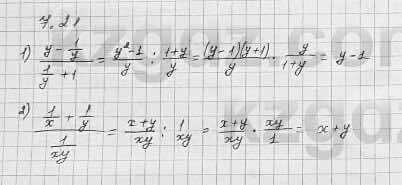 7.21
1) (y - 1/y)/(1/y + 1) = (y²-1)/y : (1+y)/y = (y-1)(y+1)/y · y/(1+y) = y-1
2) (1/x + 1/y)/(1/xy) = (x+y)/xy : 1/xy = (x+y)/xy · xy/1 = x+y